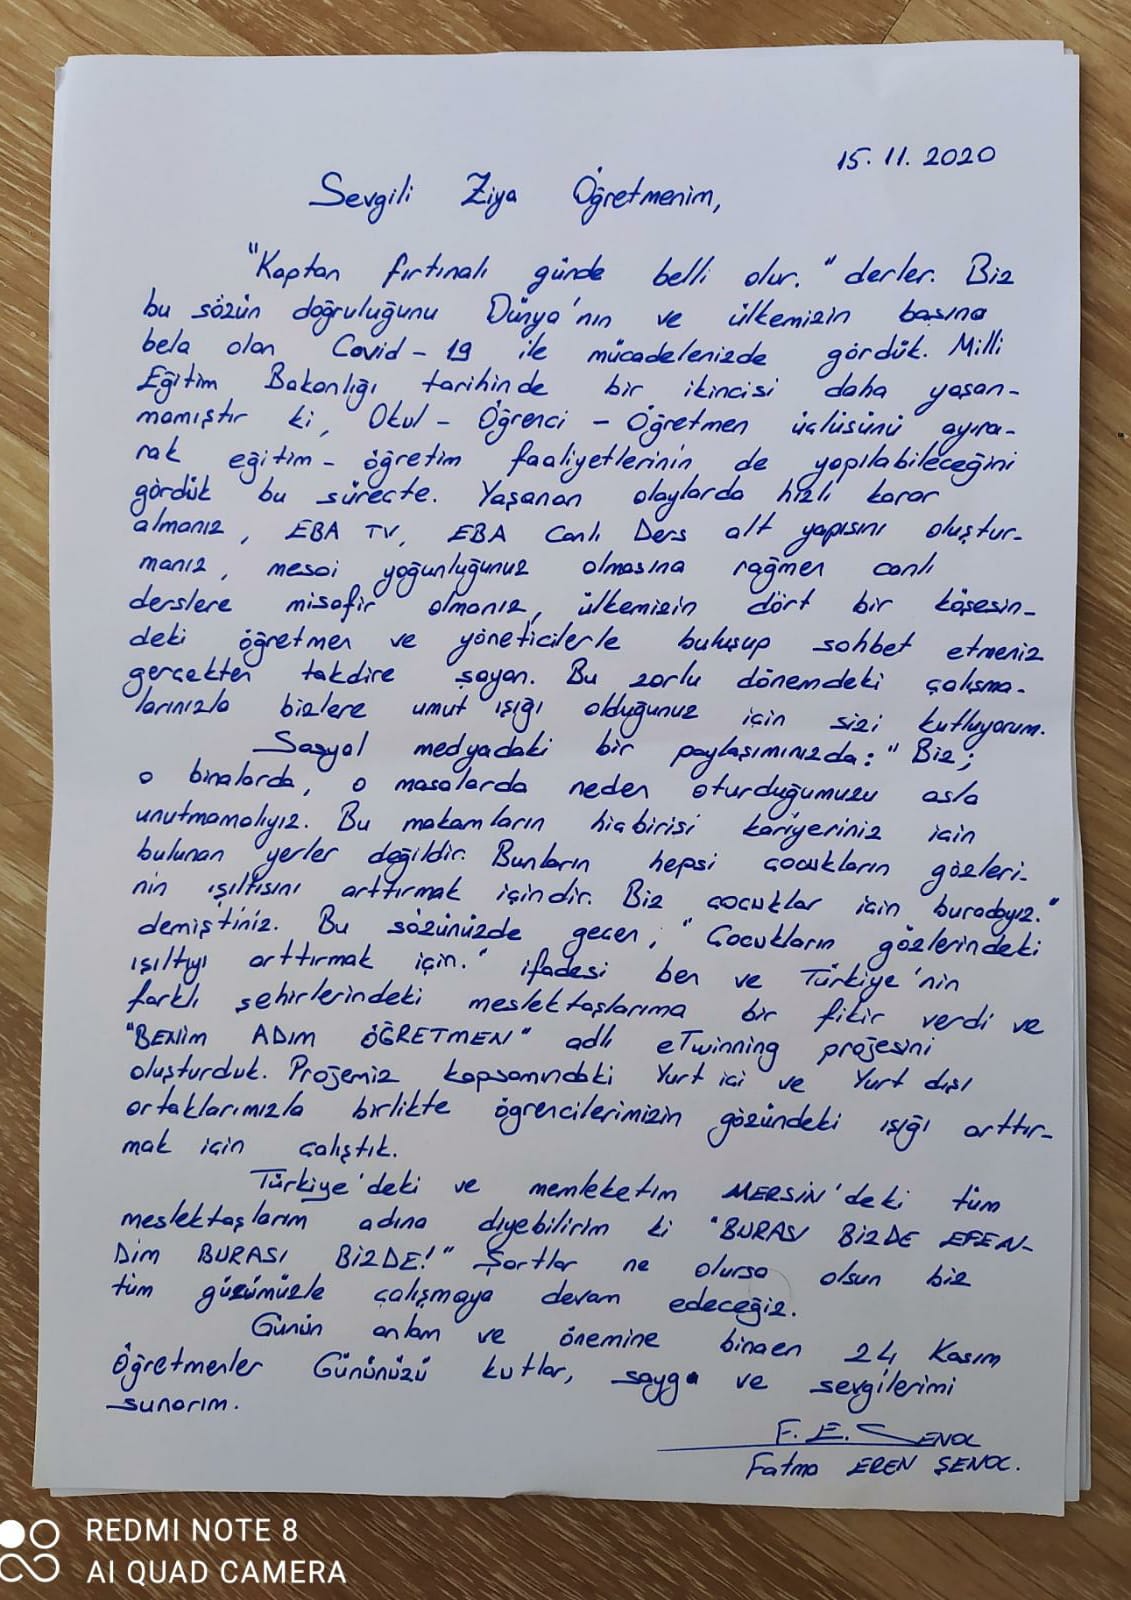 15.11.2020
Sevgili Ziya Öğretmenim,
"Kaptan fırtınalı günde belli olur." derler. Biz
bu sözün doğruluğunu Dünya'nın ve ülkemizin başına
bela olan Covid-19 ile mücadelenizde gördük. Milli
Eğitim Bakanlığı tarihinde bir ikincisi daha yaşan-
mamıştır ki, Okul - Öğrenci - Öğretmen üçlüsünü ayıra-
rak eğitim - öğretim faaliyetlerinin de yapılabileceğini
gördük bu süreçte. Yaşanan olaylarda hızlı karar
almanız, EBA TV, EBA Canlı Ders alt yapısını oluştur-
manız, mesai yoğunluğunuz olmasına rağmen canlı
derslere misafir olmanız, ülkemizin dört bir köşesin-
deki öğretmen ve yöneticilerle buluşup sohbet etmeniz
gerçekten takdire şayan. Bu zorlu dönemdeki çalışma-
larınızla bizlere umut ışığı olduğunuz için sizi kutluyorum.
Sosyal medyadaki bir paylaşımınızda: "Biz;
o binalarda, o masalarda neden oturduğumuzu asla
unutmamalıyız. Bu makamların hiçbirisi kariyeriniz için
bulunan yerler değildir. Bunların hepsi çocukların gözleri-
nin ışıltısını arttırmak içindir. Biz çocuklar için buradayız."
demiştiniz. Bu sözünüzde geçen, "Çocukların gözlerindeki
ışıltıyı arttırmak için." ifadesi ben ve Türkiye'nin
farklı şehirlerindeki meslektaşlarıma bir fikir verdi ve
"BENİM ADIM ÖĞRETMEN" adlı eTwinning projesini
oluşturduk. Projemiz kapsamındaki Yurt içi ve Yurt dışı
ortaklarımızla birlikte öğrencilerimizin gözündeki ışığı arttır-
mak için çalıştık.
Türkiye'deki ve memleketim MERSİN'deki tüm
meslektaşlarım adına diyebilirim ki "BURASI BİZDE EFEN-
DİM BURASI BİZDE!" Şartlar ne olursa olsun biz
tüm gücümüzle çalışmaya devam edeceğiz.
Günün anlam ve önemine binaen 24 Kasım
Öğretmenler Gününüzü kutlar, saygı ve sevgilerimi
sunarım.
F. E. ŞENOL
Fatma EREN ŞENOL.
REDMI NOTE 8
AI QUAD CAMERA